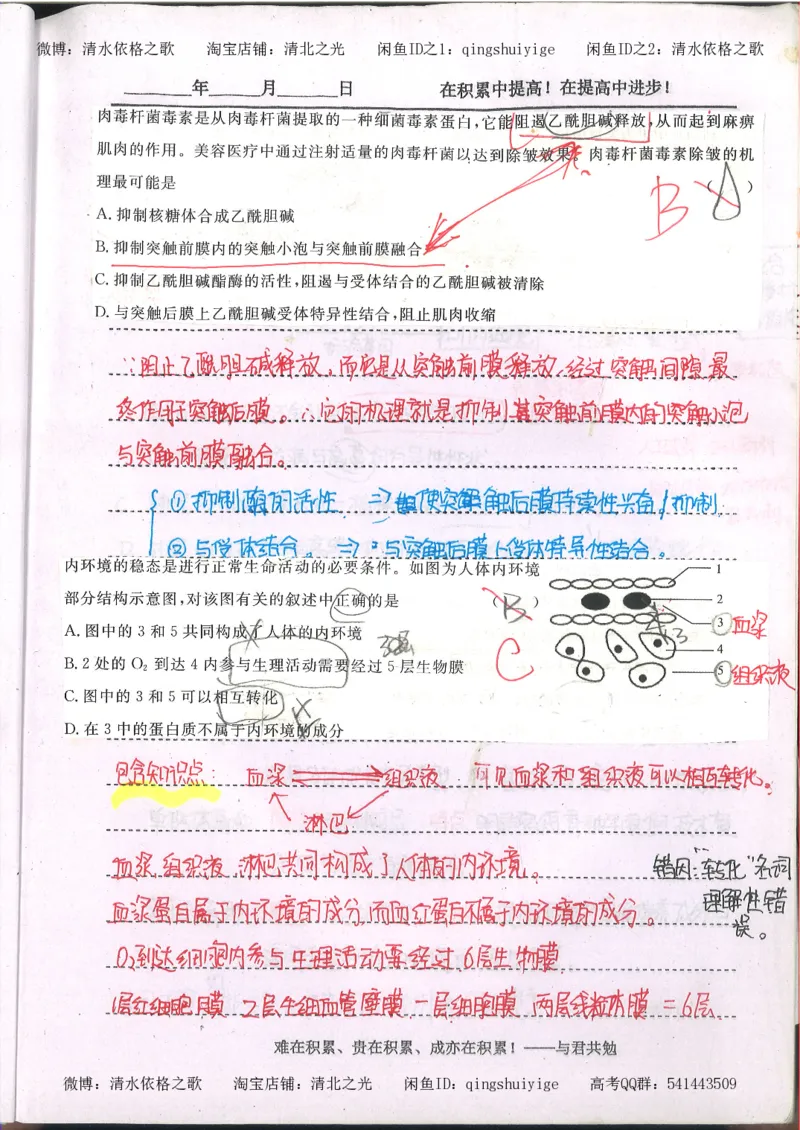 微博：清水依格之歌 淘宝店铺：清北之光 闲鱼ID之1：qingshuiyige 闲鱼ID之2：清水依格之歌
______年______月______日 在积累中提高！在提高中进步！
肉毒杆菌毒素是从肉毒杆菌提取的一种细菌毒素蛋白，它能阻遏乙酰胆碱释放，从而起到麻痹
肌肉的作用。美容医疗中通过注射适量的肉毒杆菌以达到除皱效果。肉毒杆菌毒素除皱的机
理最可能是 （ ） B
A. 抑制核糖体合成乙酰胆碱
B. 抑制突触前膜内的突触小泡与突触前膜融合
C. 抑制乙酰胆碱酯酶的活性，阻遏与受体结合的乙酰胆碱被清除
D. 与突触后膜上乙酰胆碱受体特异性结合，阻止肌肉收缩
∵阻止乙酰胆碱释放，而它是从突触前膜释放，经过突触间隙，最
终作用于突触后膜。∴它的机理就是抑制其突触前膜内的突触小泡
与突触前膜融合。
① 抑制酶的活性 ⇒ 使突触后膜持续性兴奋/抑制
② 与受体结合。⇒ 与突触后膜上受体特异性结合。
内环境的稳态是进行正常生命活动的必要条件。如图为人体内环境
部分结构示意图，对该图有关的叙述中正确的是 （B） C
A. 图中的 3 和 5 共同构成了人体的内环境
B. 2 处的 O₂ 到达 4 内参与生理活动需要经过 5 层生物膜
C. 图中的 3 和 5 可以相互转化
D. 在 3 中的蛋白质不属于内环境的成分
1
2
3 血浆
4
5 组织液
包含知识点： 血浆 ⇌ 组织液 可见血浆和组织液可以相互转化。
淋巴
血浆、组织液、淋巴共同构成了人体的内环境。
错因："转化"名词
理解性错
误。
血浆蛋白属于内环境的成分，而血红蛋白不属于内环境的成分。
O₂到达细胞内参与生理活动要经过6层生物膜
1层红细胞膜 2层毛细血管壁膜 一层细胞膜 两层线粒体膜 =6层
难在积累、贵在积累、成亦在积累！——与君共勉
微博：清水依格之歌 淘宝店铺：清北之光 闲鱼ID：qingshuiyige 高考QQ群：541443509